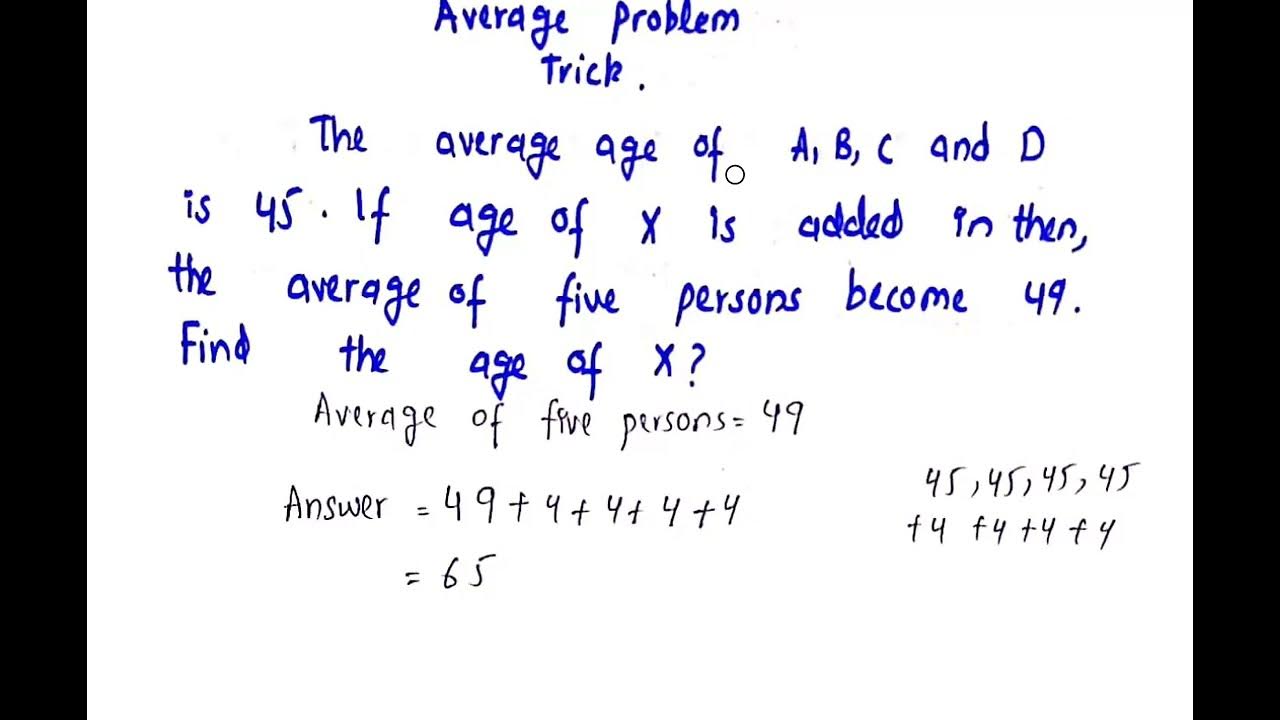 Average Problem
Trick.
The average age of A, B, C and D
is 45. If age of X is added in then,
the average of five persons become 49.
Find the age of X?
Average of five persons = 49
45, 45, 45, 45
Answer = 49 + 4 + 4 + 4 + 4
+4 +4 +4 +4
= 65